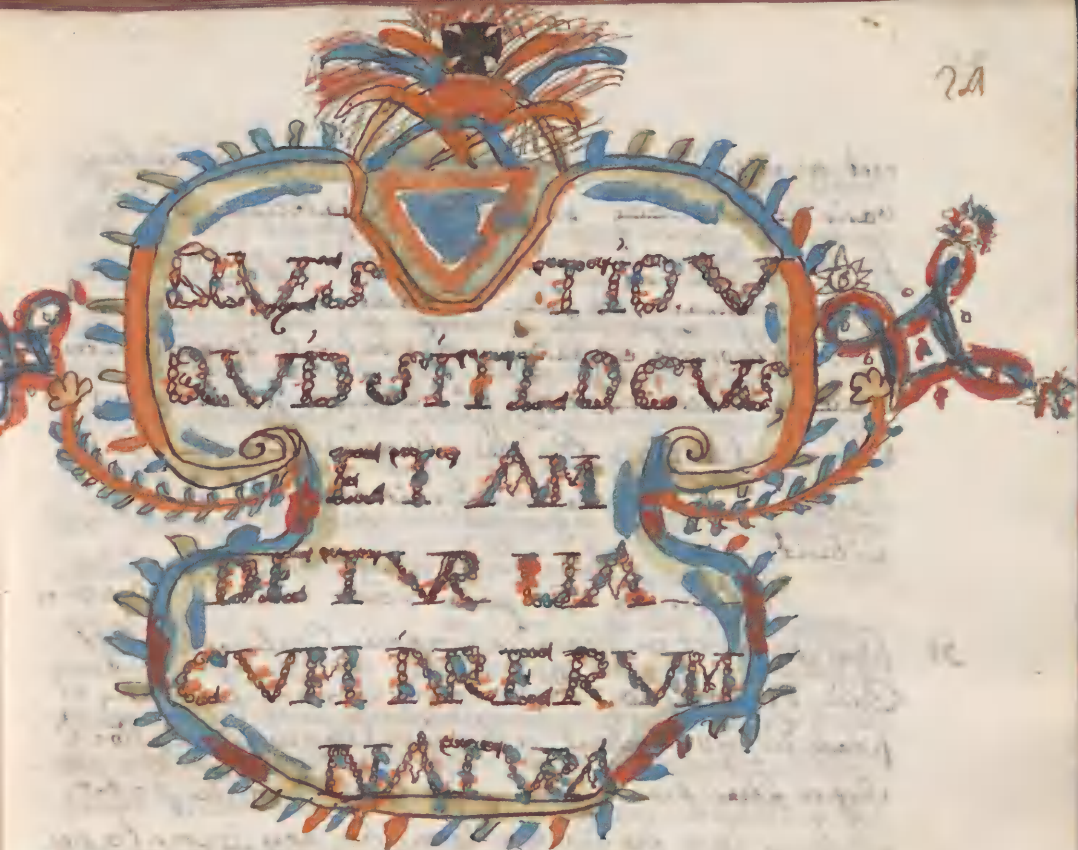 21
QVÆS TIO V
QVID SIT LOCUS
ET AN
DETVR VA
CVM IN RERVM
NATVRA